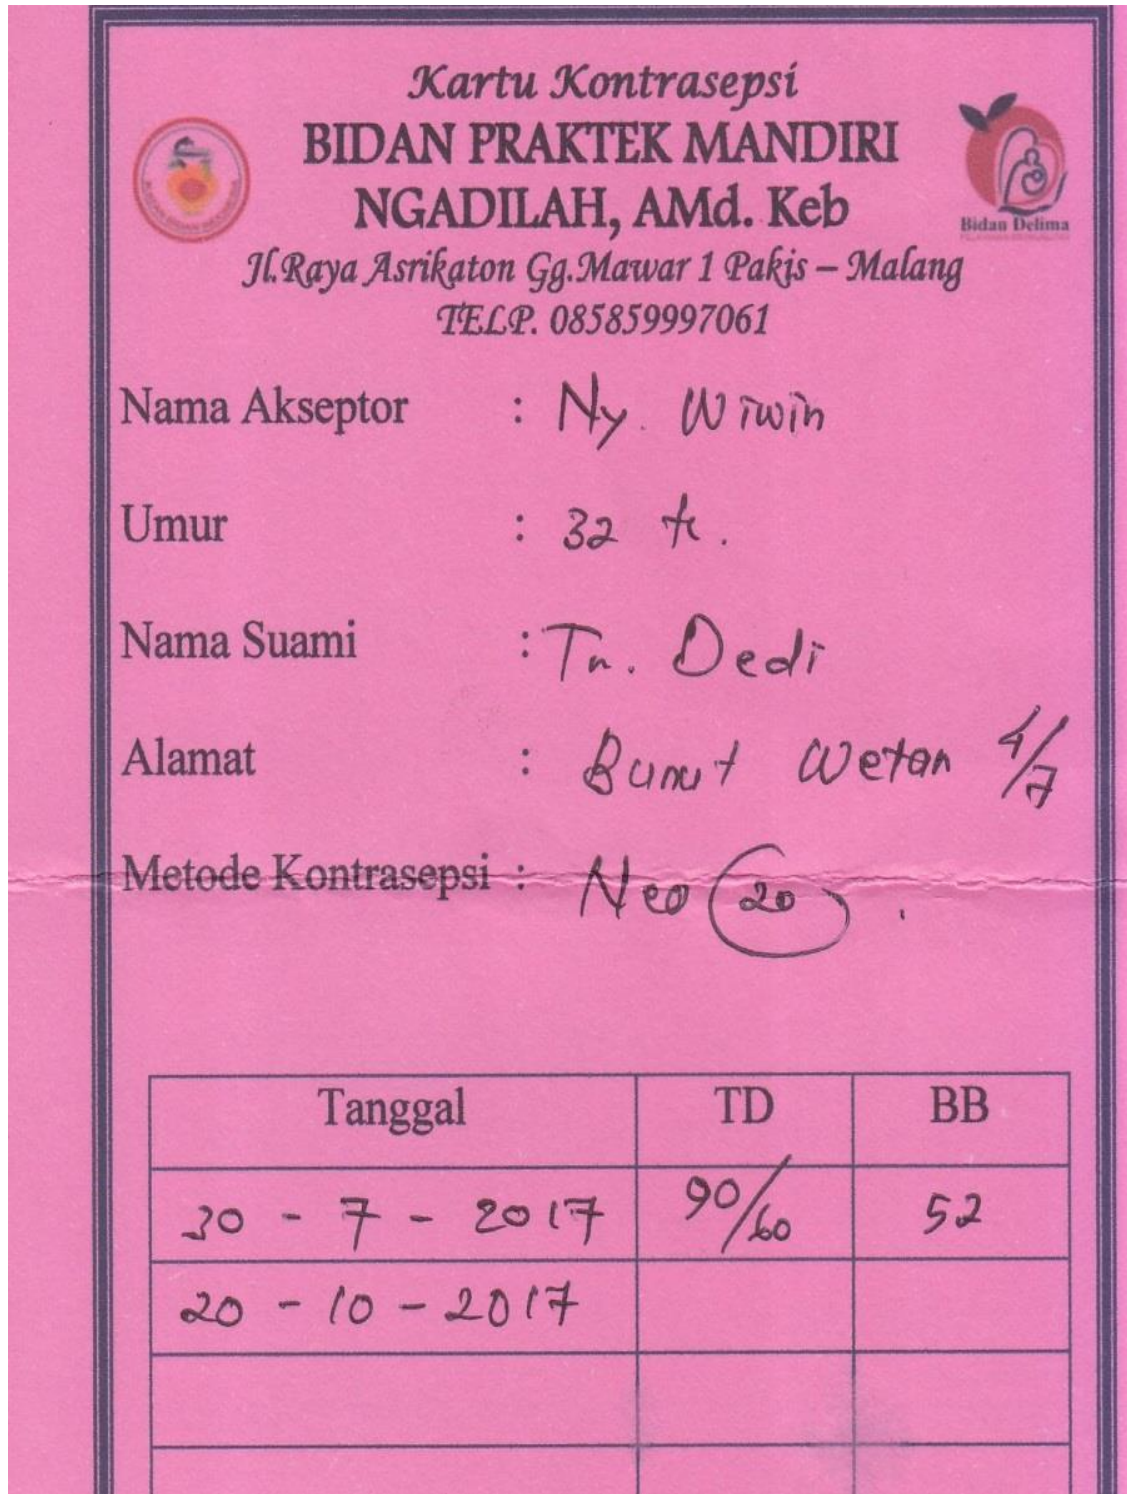 Kartu Kontrasepsi
BIDAN PRAKTEK MANDIRI
NGADILAH, AMd. Keb
Bidan Delima
Jl.Raya Asrikaton Gg.Mawar 1 Pakis – Malang
TELP. 085859997061
Nama Akseptor : Ny. Wiwin
Umur : 32 th.
Nama Suami : Tn. Dedi
Alamat : Bunut Wetan 4/7
Metode Kontrasepsi : Neo 20
Tanggal TD BB
30 - 7 - 2017 90/60 52
20 - 10 - 2017